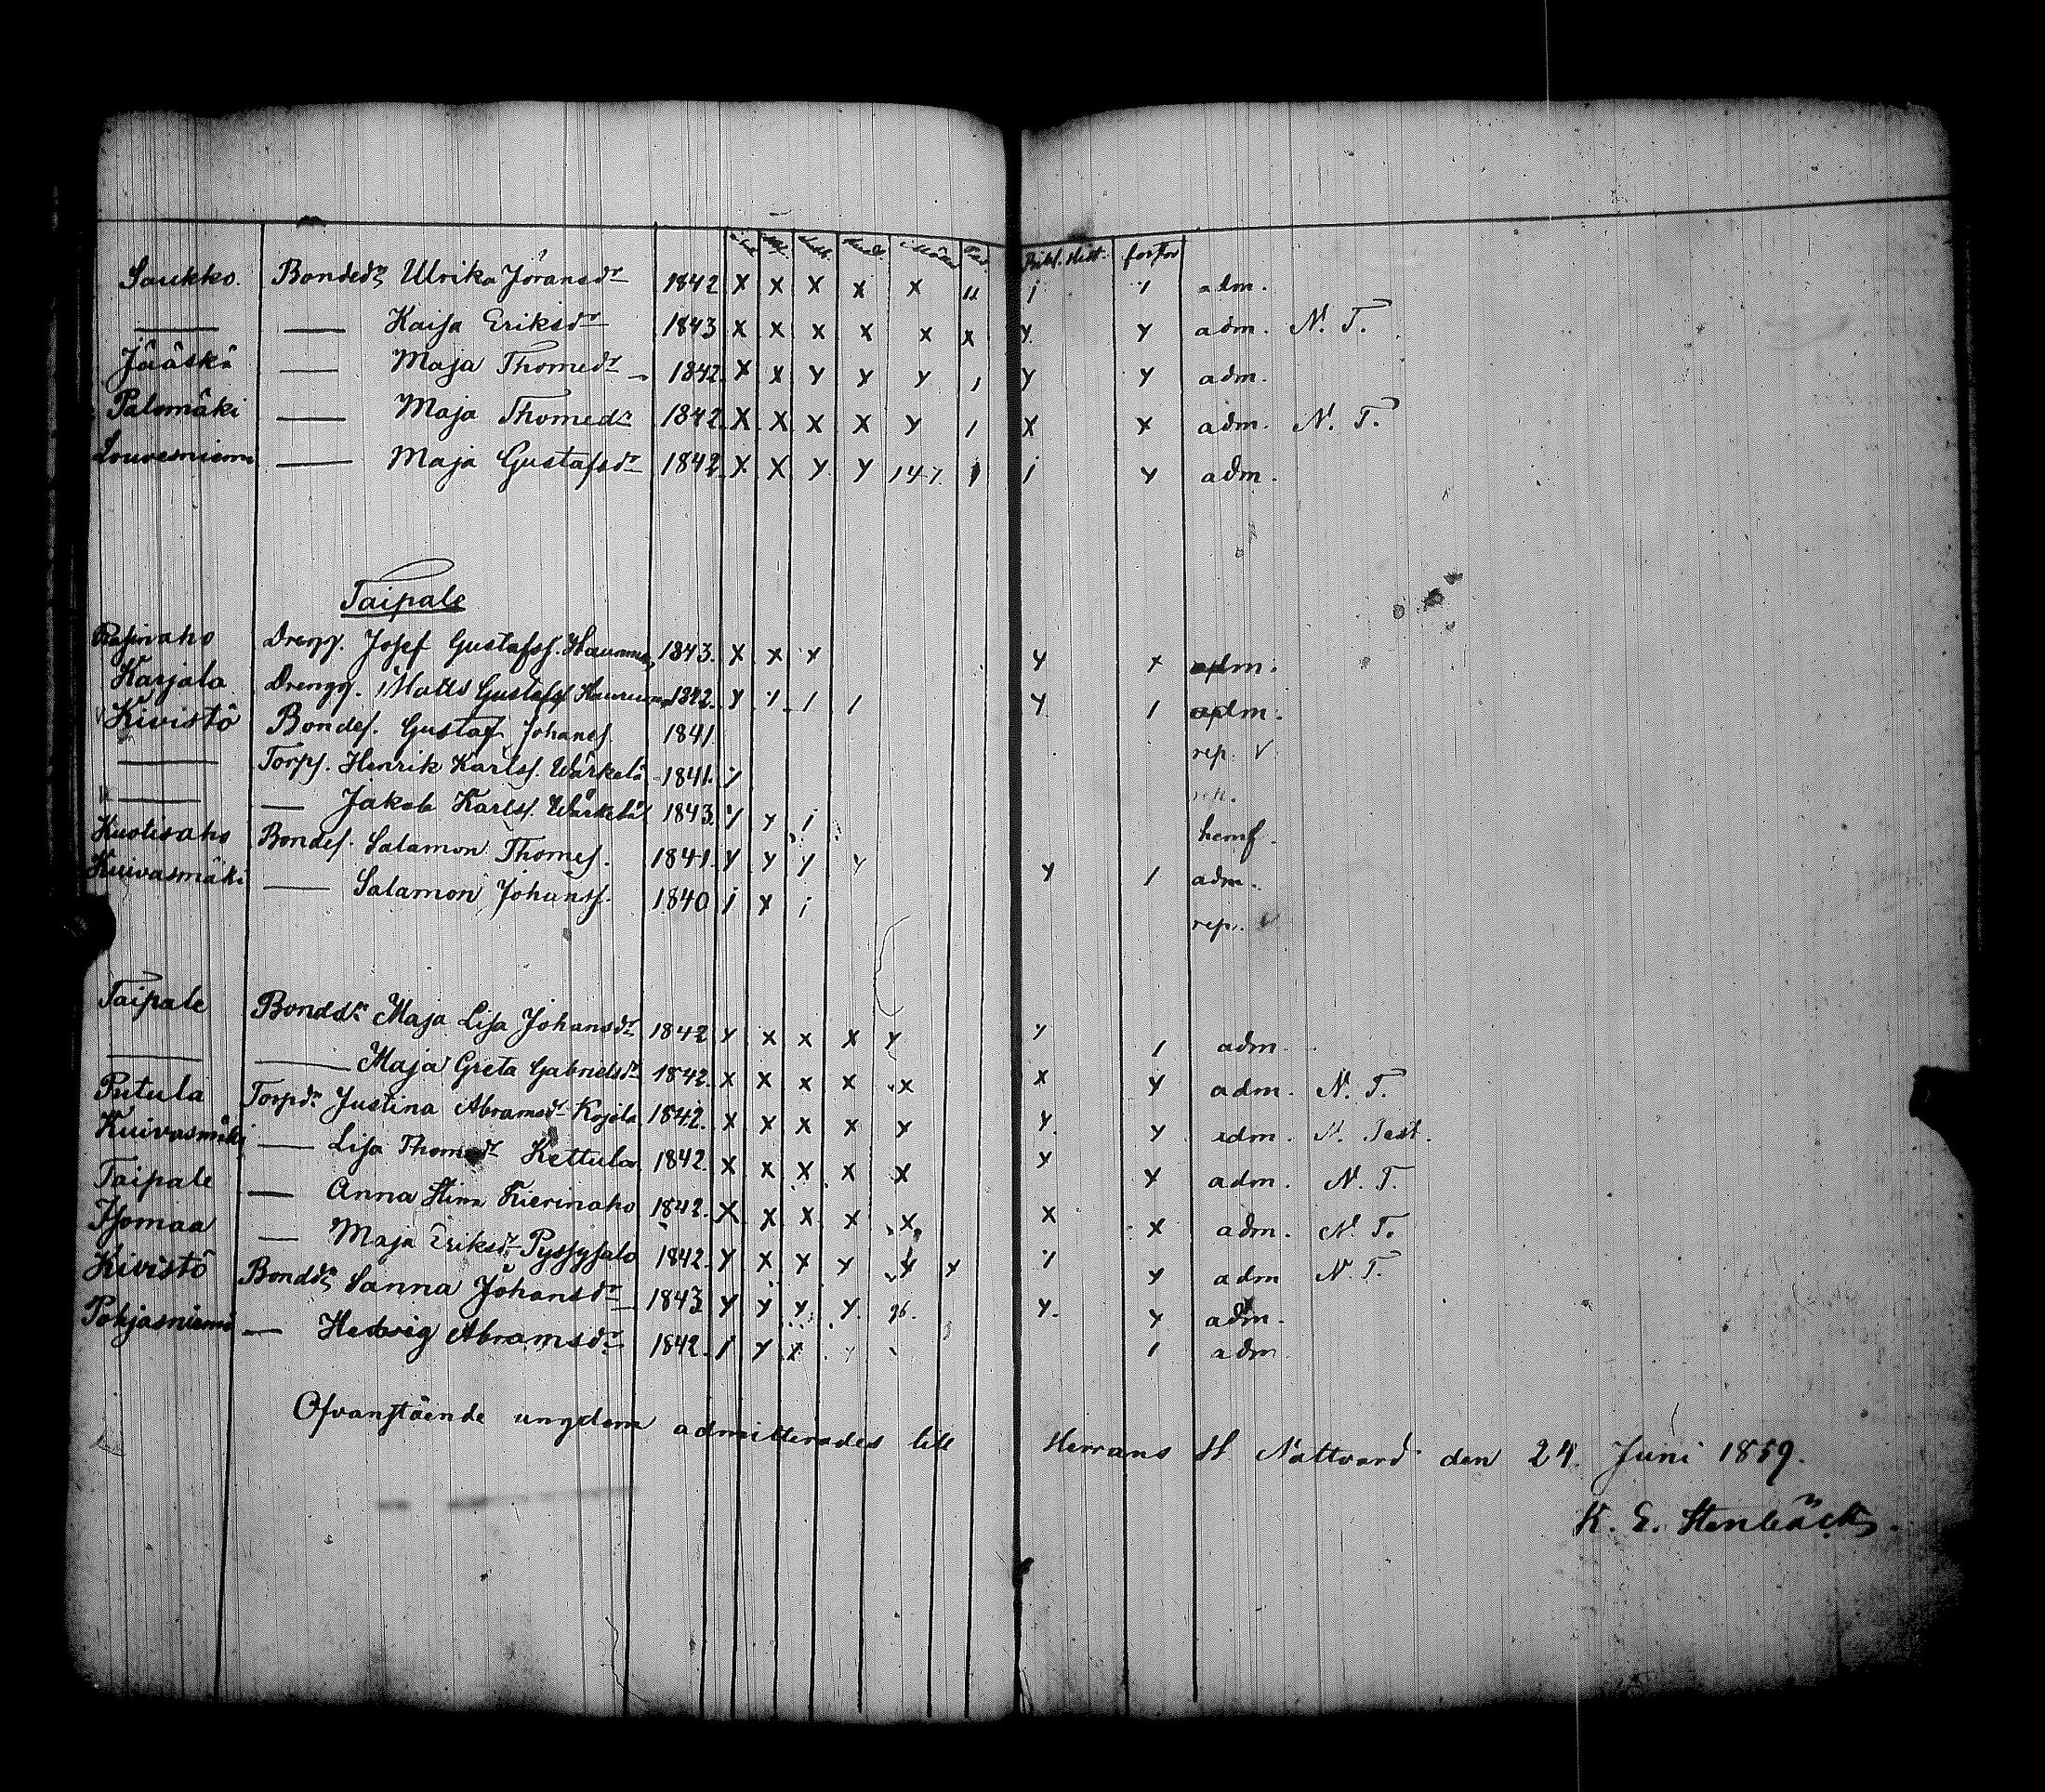 Bibl. Hist. forstor
Saukko. Bondedr Ulrika Jöransdr 1842 X X X X X u i 1 adm.
— — Kaisa Eriksdr 1843 X X X X X X Y. Y adm. N. T.
Jääskä — Maja Thomedr 1842. X X Y Y Y 1 Y Y adm.
Palomäki — Maja Thomedr 1842. X X X X Y 1 X X adm. N. T.
Louvesniemi — Maja Gustafsdr 1842 X X Y Y 147. 1 1 Y adm.
Taipale
Drengg. Josef Gustafss. 1843. X X Y Y X adm.
Karjala Drengg. Matts Gustafss 1842. Y 1 1 1 Y 1 adm.
Kivistö Bondes. Gustaf Johanss. 1841. rep. V
— Torps. Henrik Karlss. Wärkelä 1841. Y rep.
— — Jakob Karlss. Wärkelä 1843. Y Y i hemf.
Kuotisaho Bondes. Salamon Thomes. 1841. Y Y Y Y Y 1 adm.
Kuivasmäki — Salamon Johanss. 1840 i X i rep. V
Taipale Bonddr Maja Lisa Johansdr 1842 Y X X X Y Y 1 adm.
— — Maja Greta Gabrielsdr 1842. X X X X X X Y adm. N. T.
Putula Torpdr Justina Abramsdr Kojola 1842. X X X X X Y. Y adm. N. Test.
Kuivasmäki — Lisa Thomedr Kettula 1842. X X X X X Y X adm. N. T.
Taipale — Anna Stina Kierinaho 1842. X X X X X X X adm. N. T.
Isomaa — Maja Eriksdr Pyssysalo 1842. Y X X Y Y Y Y Y adm N. T.
Kivistö Bonddr Sanna Johansdr 1843 Y Y Y. Y. 26. Y. Y adm.
Pohjasniemi — Hedvig Abramsdr 1842. 1 Y X 1 adm
Ofvanstående ungdom admitterades till Herrans H. Nattvard den 24. Juni 1859.
K. E. Stenbäck.